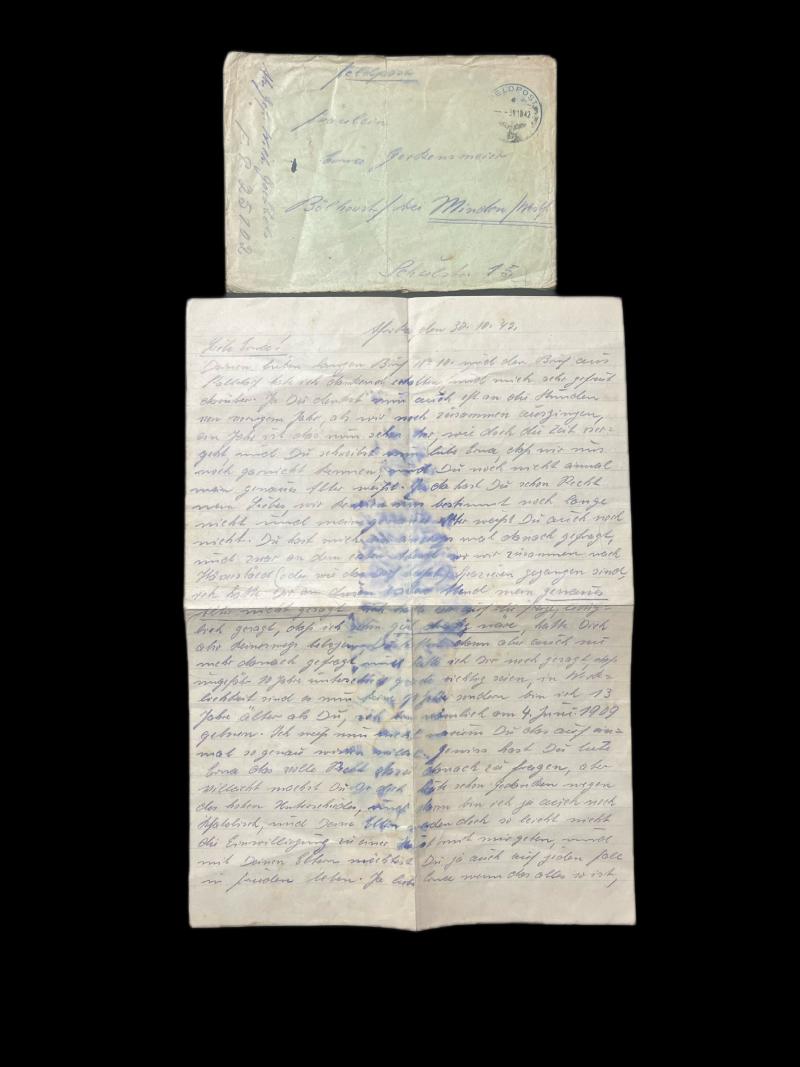 Feldpost
FELDPOST
31.10.42
Fräulein
Erna Gerkensmeier
Bölhorst / bei Minden / Westf.
Schulstr. 15
Abs.
F.P. 25102
den 30.10.42.
Liebe Erna!
Deinen lieben langen Brief Nr. 10. und den Brief aus
habe ich dankend erhalten, und mich sehr gefreut
darüber. Ja Du denkst nun auch oft an die Stunden
von vorigem Jahr, als wir noch zusammen ausgingen,
ein Jahr ist das nun schon her, wie doch die Zeit ver-
geht, und Du schreibst nun liebe Erna, daß wir uns
noch garnicht kennen, und Du noch nicht einmal
mein genaues Alter weißt. Ja da hast Du schon Recht
mein Liebes, wir kennen uns bestimmt noch lange
nicht und mein genaues Alter weißt Du auch noch
nicht. Du hast mich mal danach gefragt,
und zwar an dem ersten Abend wo wir zusammen nach
(oder wie das auf heißt) spazieren gegangen sind,
ich hatte Dir an diesem Abend mein genaues
Alter nicht gesagt, ich hatte Dir auf die Frage ledig-
lich gesagt, daß ich schon wäre, hatte Dich
also keineswegs belogen, Du hattest dann aber auch nie
mehr danach gefragt, und hatte ich Dir noch gesagt, daß
ungefähr 10 Jahre unterschied richtig seien, in Wirk-
lichkeit sind es nun sondern bin ich 13
Jahre älter als Du, ich bin nämlich am 4. Juni 1909
geboren. Ich weiß nun nicht warum Du das auf ein-
mal so genau wissen willst, gewiss hast Du liebe
Erna das volle Recht danach zu fragen, aber
vielleicht machst Du Dir doch schon Gedanken wegen
des hohen Unterschiedes, und dann bin ich ja auch noch
Katholisch, und Deine Eltern werden doch so leicht nicht
die Einwilligung zu einer mit mir geben, und
mit Deinen Eltern möchtest Du ja auch auf jeden Fall
in Frieden leben. Ja liebe Erna wenn das alles so ist,